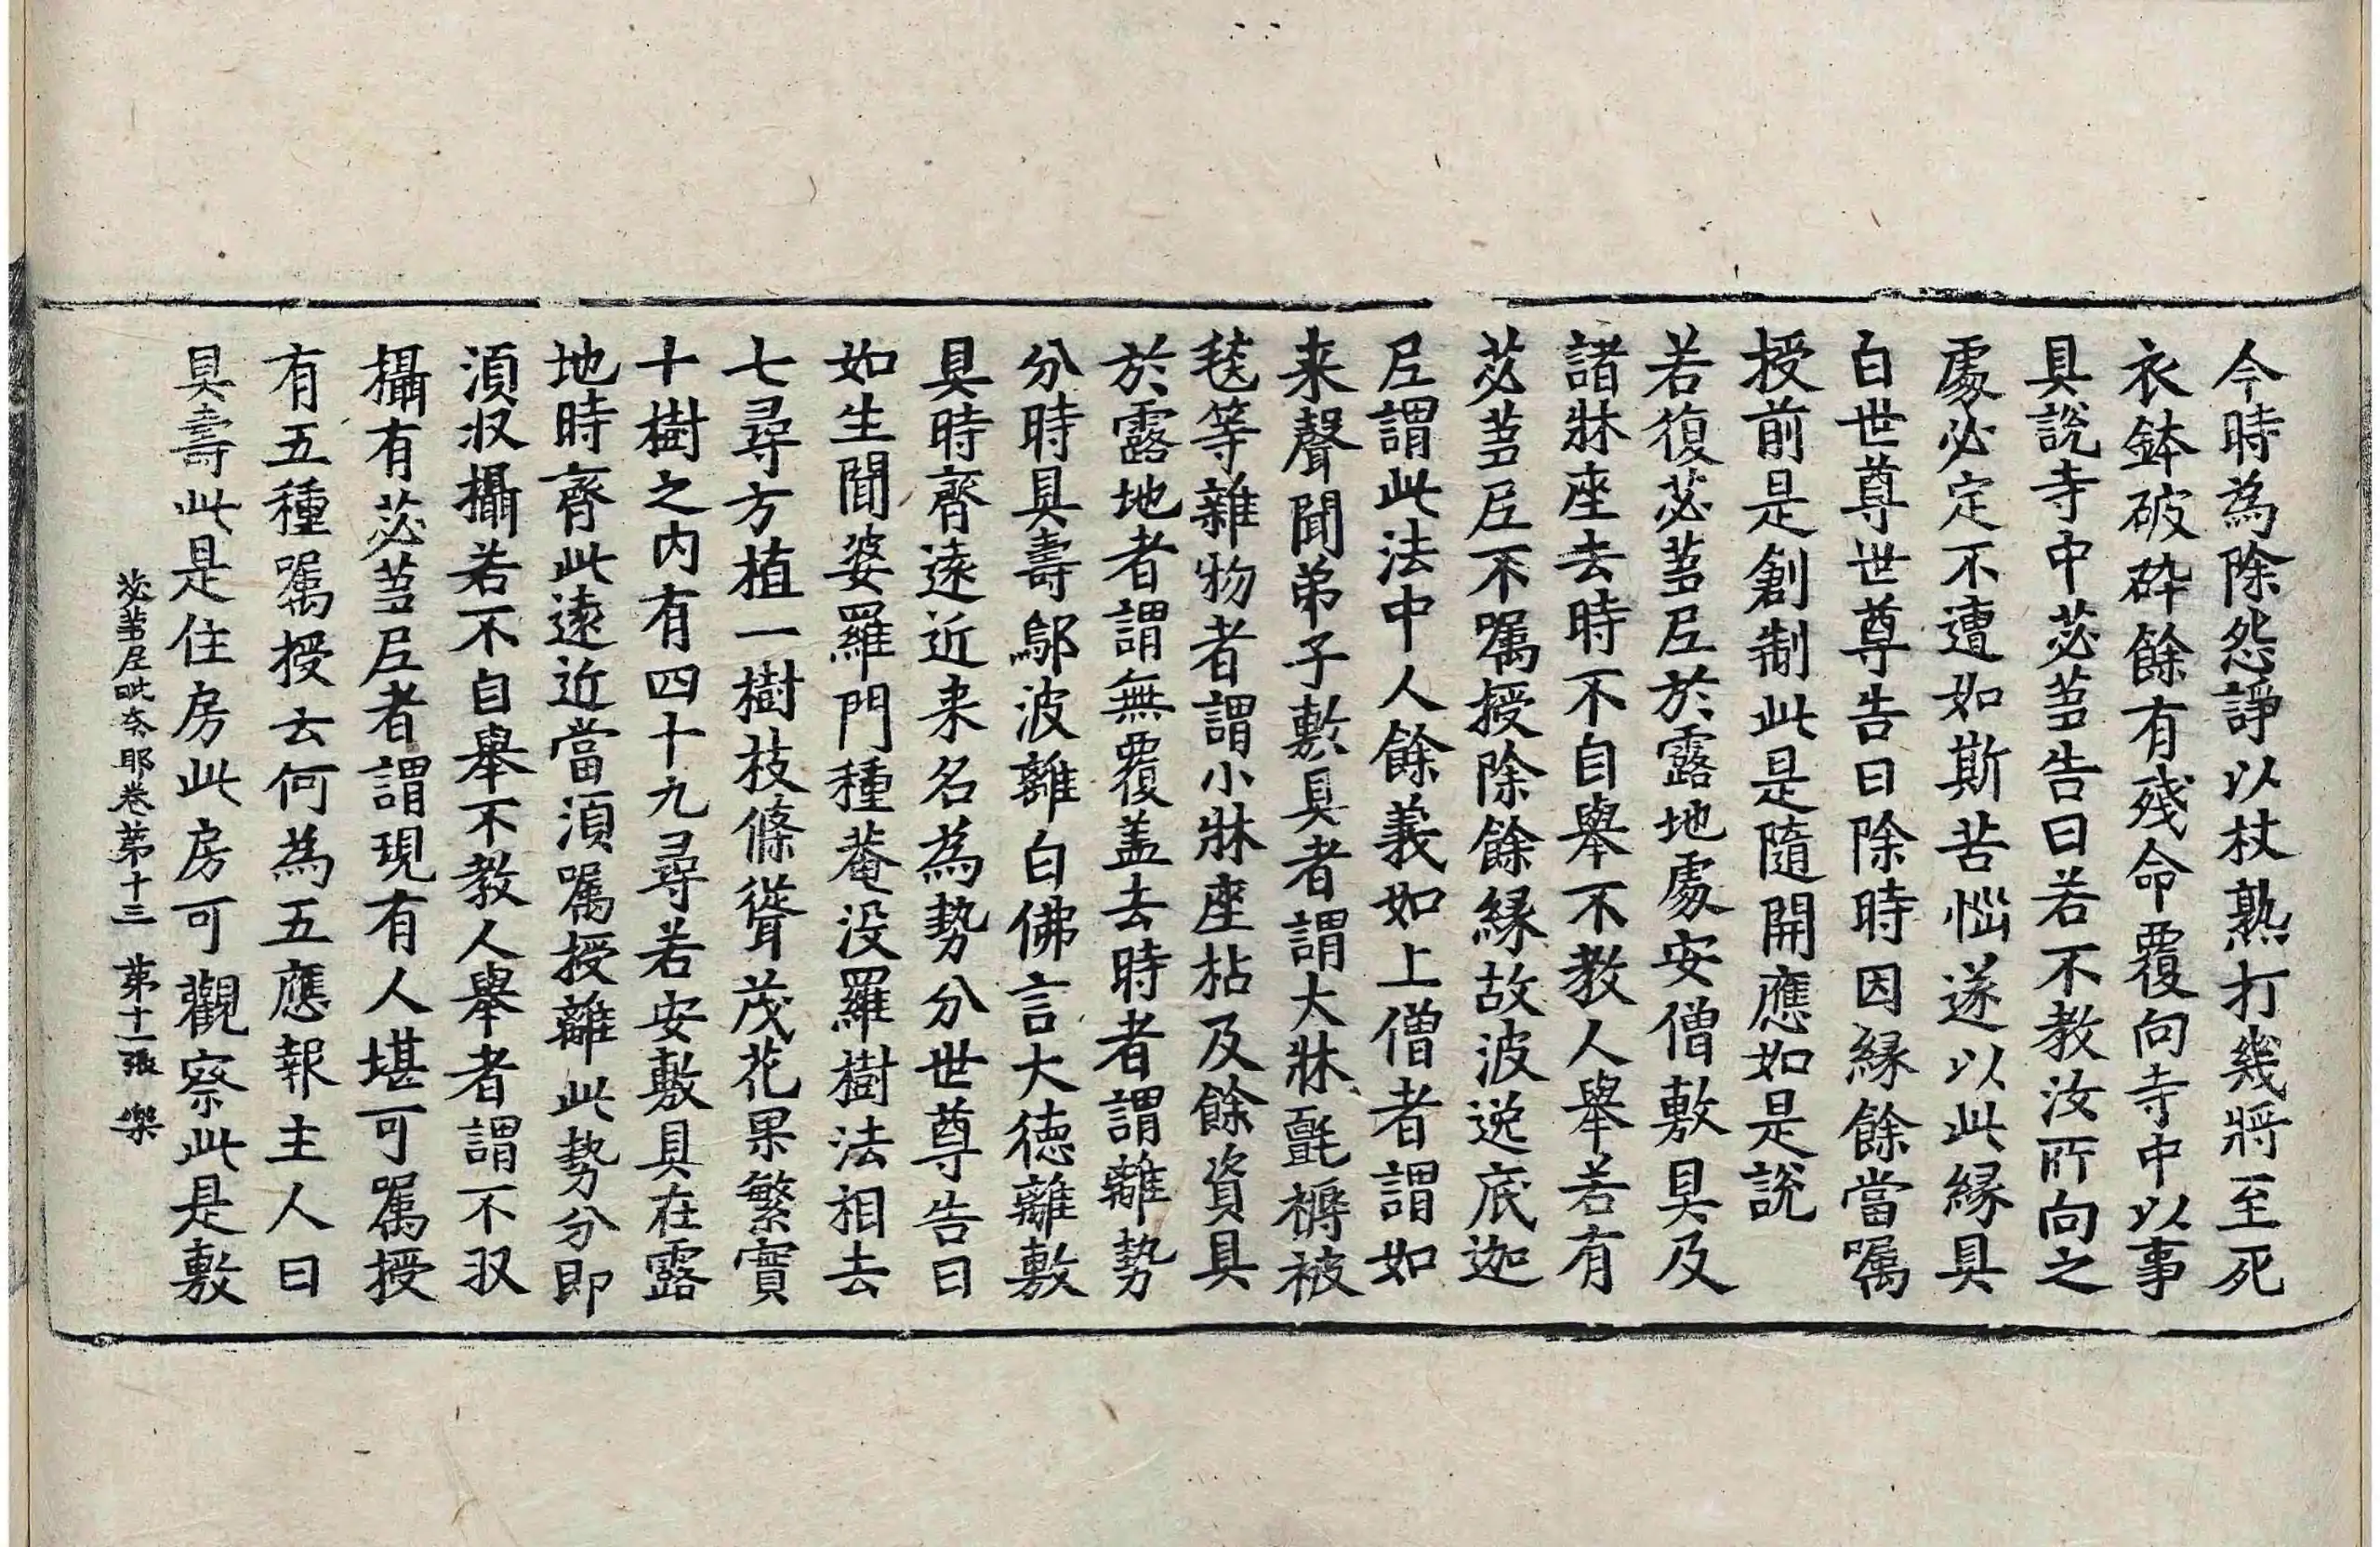 今時為除怨諍以杖熟打幾將至死
衣鉢破碎餘有殘命覆向寺中以事
具說寺中苾蒭告曰若不教汝所向之
處必定不遭如斯苦惱遂以此緣具
白世尊世尊告曰除時因緣餘當囑
授前是創制此是隨開應如是說
若復苾蒭尼於露地處安僧敷具及
諸牀座去時不自舉不教人舉若有
苾蒭尼不囑授除餘緣故波逸底迦
尼謂此法中人餘義如上僧者謂如
来聲聞弟子敷具者謂大牀氈褥被
毯等雜物者謂小牀座枮及餘資具
於露地者謂無覆盖去時者謂離勢
分時具壽鄔波離白佛言大德離敷
具時齊遠近来名為勢分世尊告曰
如生聞婆羅門種菴没羅樹法相去
七尋方植一樹枝條聳茂花果繁實
十樹之内有四十九尋若安敷具在露
地時齊此遠近當須囑授離此勢分即
須収攝若不自舉不教人舉者謂不収
攝有苾蒭尼者謂現有人堪可囑授
有五種囑授云何為五應報主人曰
具壽此是住房此房可觀察此是敷
苾蒭尼毗奈耶卷第十三　第十一張　樂